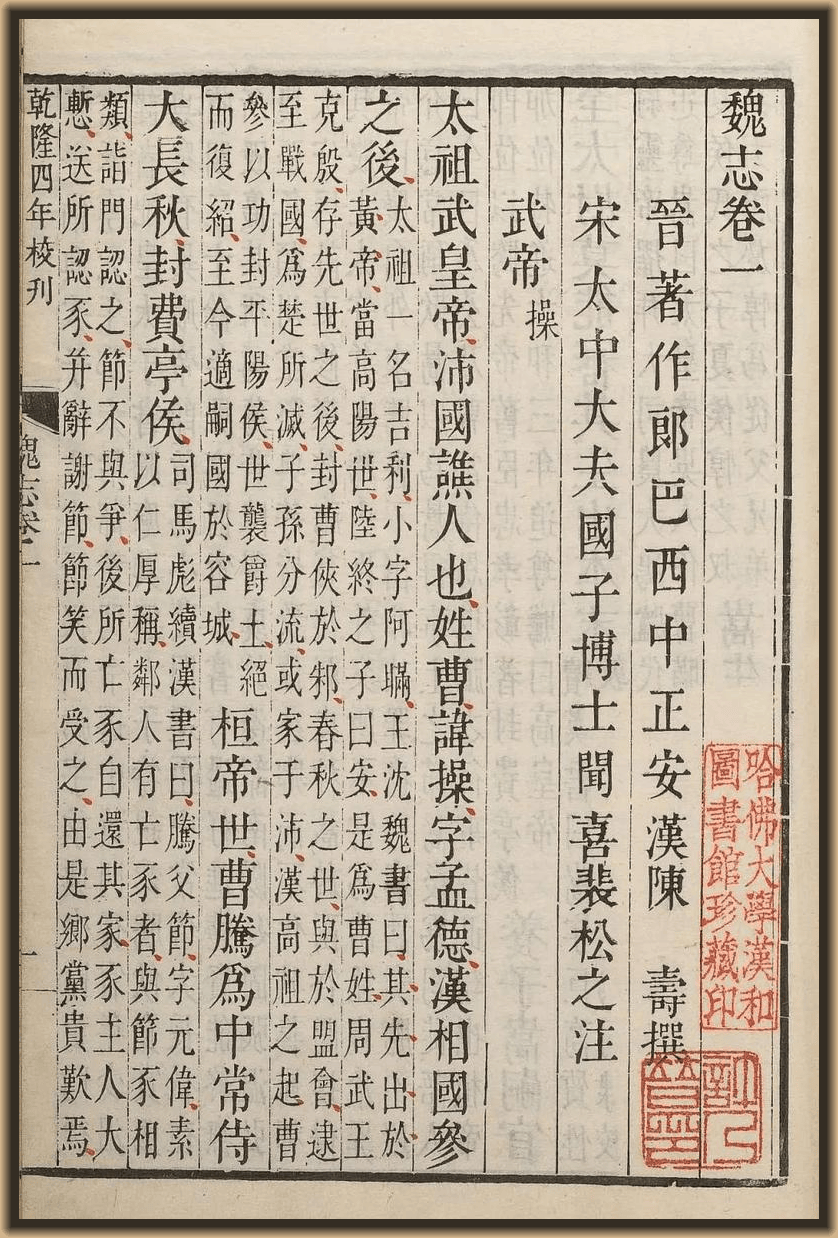 魏志卷一
晉著作郎巴西中正安漢陳 壽撰
宋太中大夫國子博士聞喜裴松之注
武帝操
太祖武皇帝沛國譙人也姓曹諱操字孟德漢相國參
之後
太祖一名吉利小字阿瞞王沈魏書曰其先出於
黃帝當高陽世陸終之子曰安是爲曹姓周武王
克殷存先世之後封曹俠於邾春秋之世與於盟會逮
至戰國爲楚所滅子孫分流或家于沛漢高祖之起曹
參以功封平陽侯世襲爵土絕
而復紹至今適嗣國於容城
桓帝世曹騰爲中常侍
大長秋封費亭侯
司馬彪續漢書曰騰父節字元偉素
以仁厚稱鄰人有亡豕者與節豕相
類詣門認之節不與爭後所亡豕自還其家豕主人大
慙送所認豕并辭謝節節笑而受之由是鄉黨貴歎焉
乾隆四年校刊
魏志卷一
一
哈佛大學漢和
圖書館珍藏印